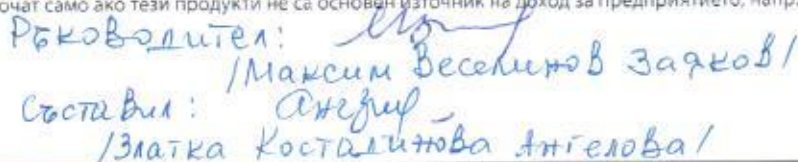 очат само ако тези продукти не са основен източник на доход за предприятието, напр
Ръководител:
/Максим Веселинов Заяков/
Съставил:
/Златка Косталинова Ангелова/